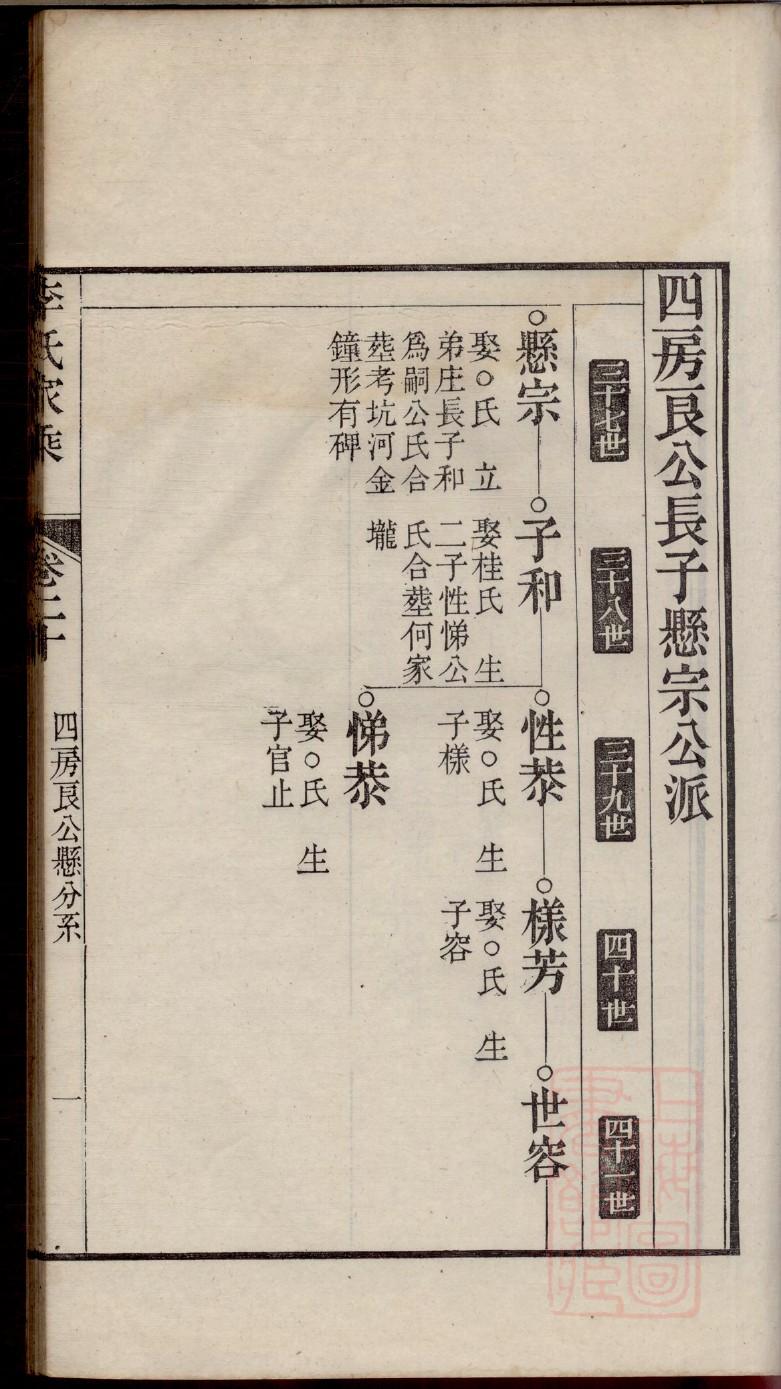 四房艮公長子懸宗公派
三十七世
三十八世
三十九世
四十世
四十一世
懸宗
娶○氏　立
弟庄長子和
爲嗣公氏合
塟考坑河金
鐘形有碑
子和
娶桂氏　生
二子性悌公
氏合塟何家
壠
性恭
娶○氏　生
子樣
樣芳
娶○氏　生
子容
世容
悌恭
娶○氏　生
子官止
李氏家乘
卷二十
四房艮公懸分系
一